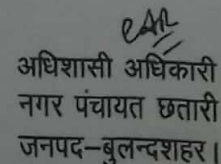 अधिशासी अधिकारी
नगर पंचायत छतारी
जनपद-बुलन्दशहर।